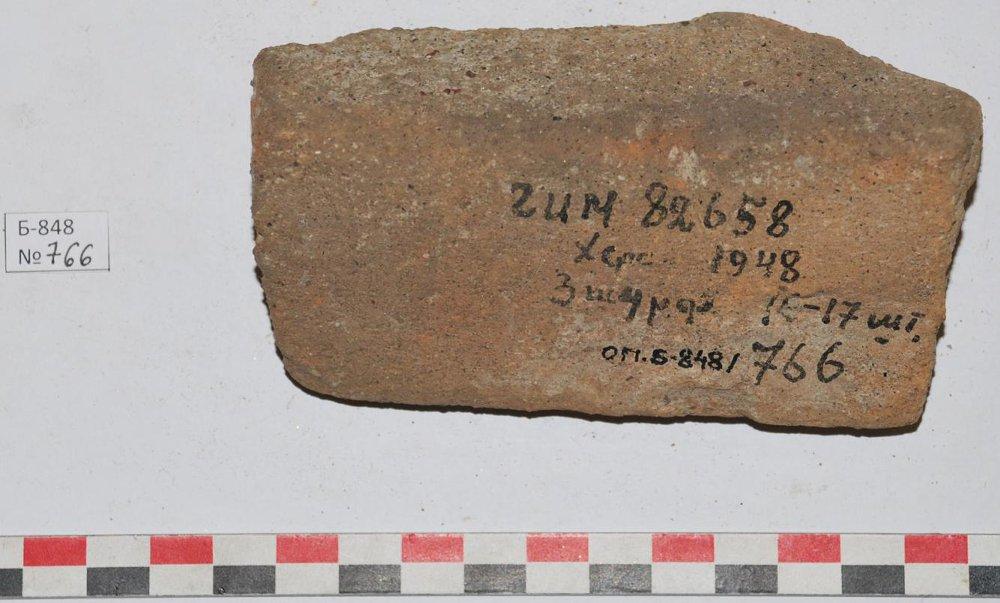 Б-848
№ 766
ГИМ 82658
1948
3 шурф 16-17 шт.
оп. Б-848/766